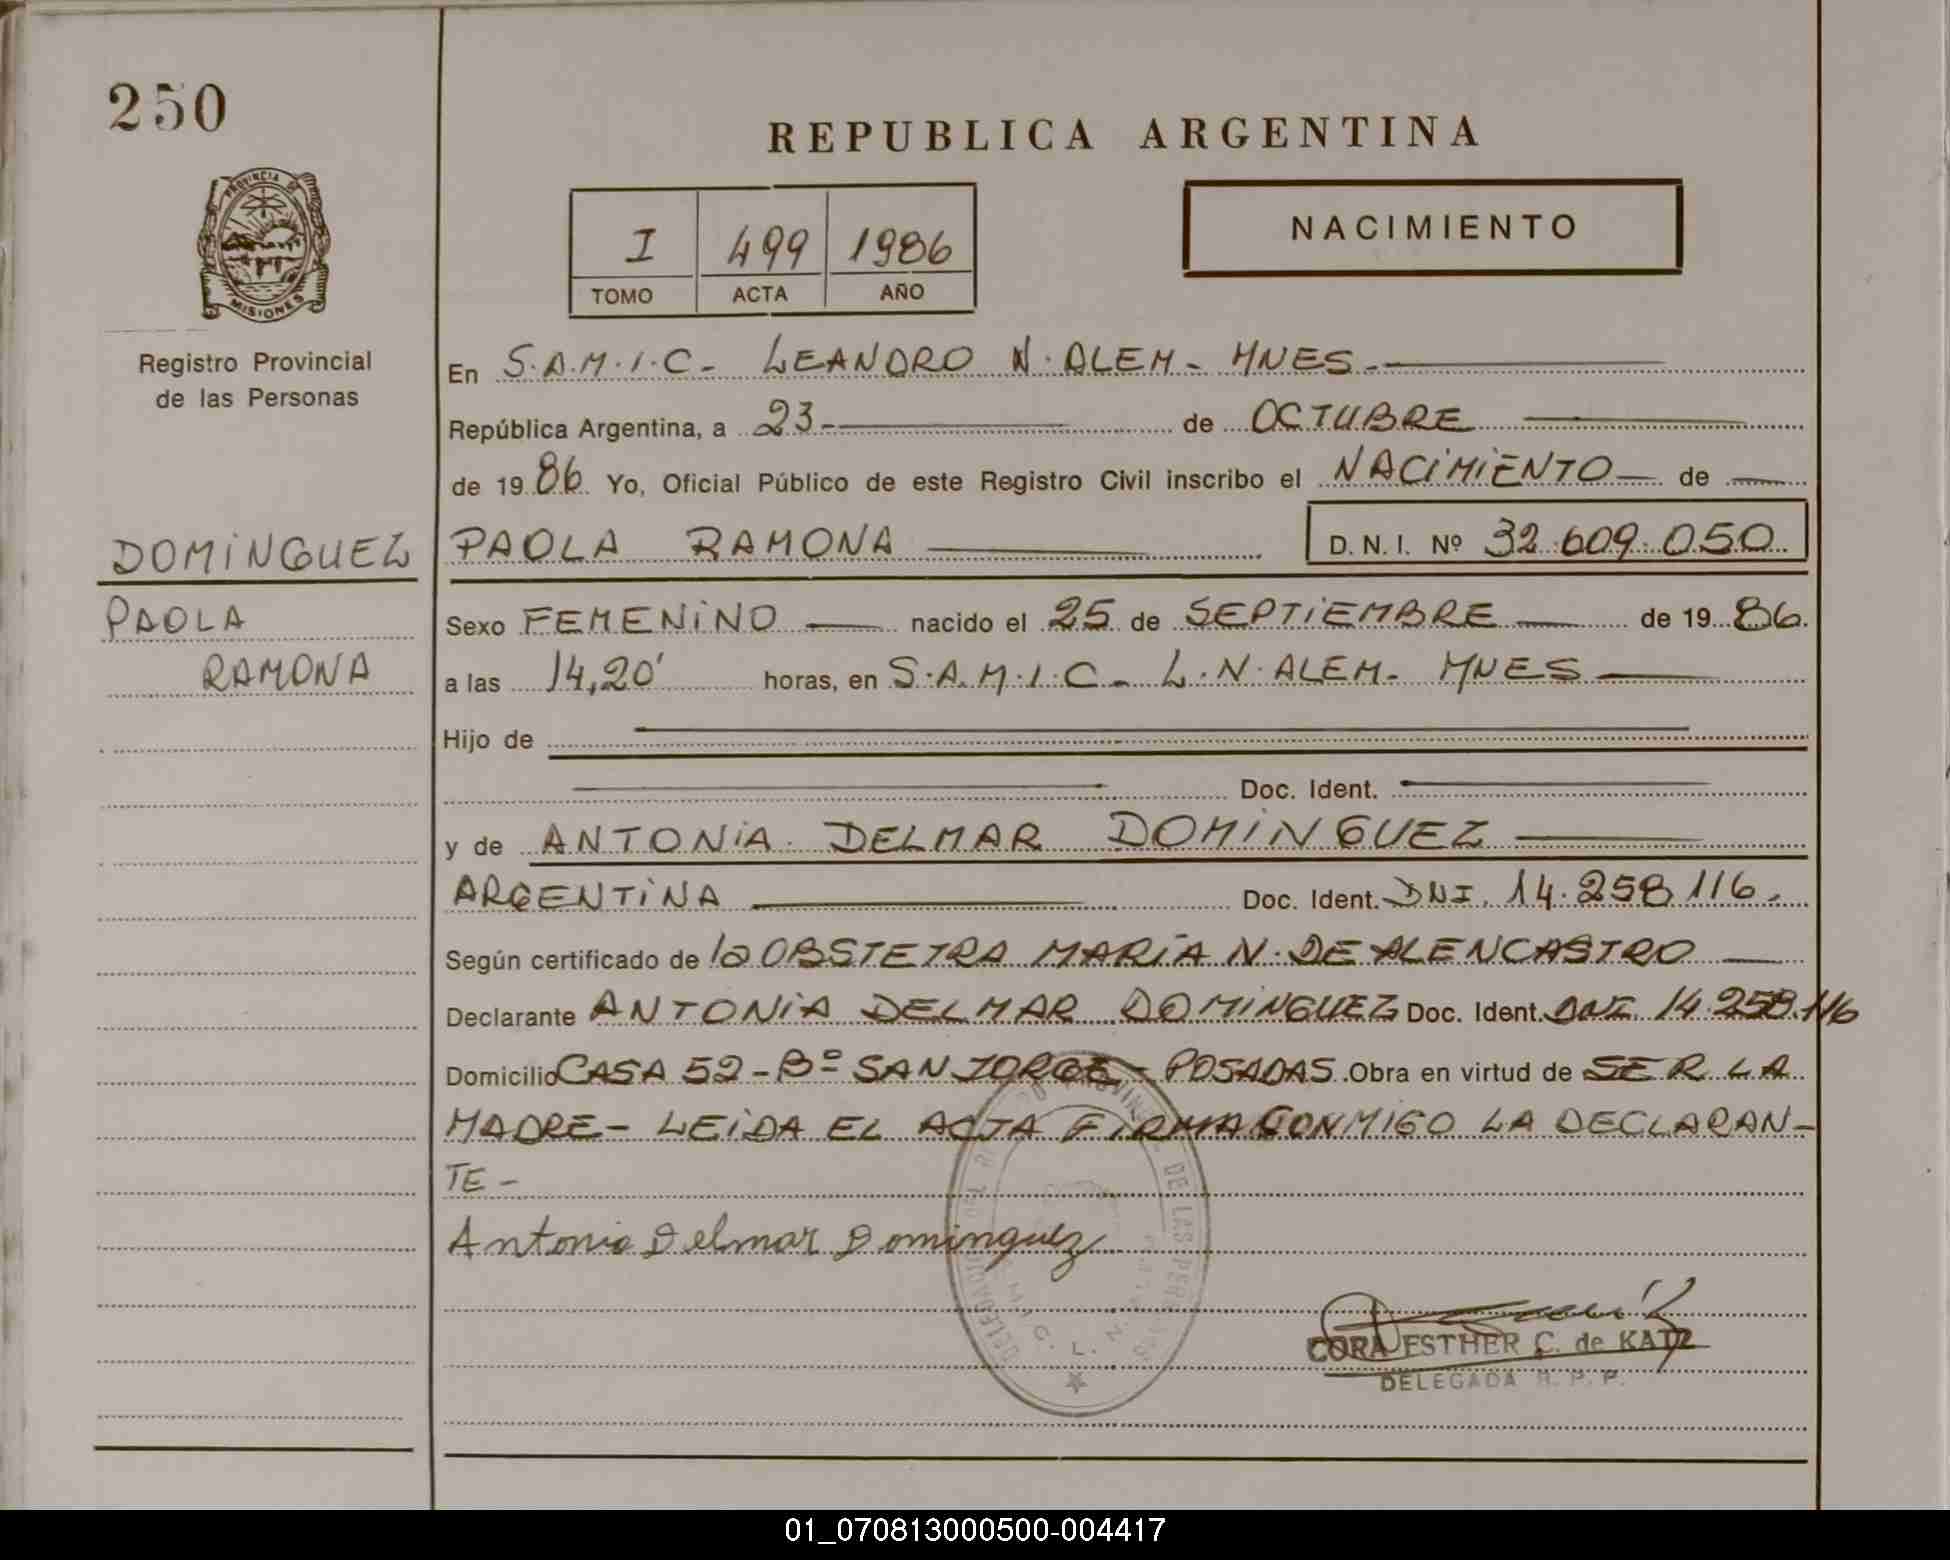 250
REPUBLICA ARGENTINA
PROVINCIA DE
MISIONES
I 499 1986
TOMO ACTA AÑO
NACIMIENTO
Registro Provincial
de las Personas
En S.A.M.I.C- LEANDRO N. ALEM- MNES.-
República Argentina, a 23- de OCTUBRE
de 1986 Yo, Oficial Público de este Registro Civil inscribo el NACIMIENTO de
DOMINGUEZ PAOLA RAMONA D. N. I. Nº 32.609.050
PAOLA Sexo FEMENINO nacido el 25 de SEPTIEMBRE de 1986.
RAMONA a las 14,20' horas, en S.A.M.I.C- L.N. ALEM- MNES
Hijo de
Doc. Ident.
y de ANTONIA DELMAR DOMINGUEZ
ARGENTINA Doc. Ident. DNI. 14.258.116.
Según certificado de la OBSTETRA MARIA N. DE ALENCASTRO
Declarante ANTONIA DELMAR DOMINGUEZ Doc. Ident. DNI 14.258.116
Domicilio CASA 52-Bº SAN JORGE- POSADAS. Obra en virtud de SER LA
MADRE- LEIDA EL ACTA FIRMA CONMIGO LA DECLARAN-
TE-
Antonia Delmar Dominguez
CORA ESTHER C. de KATZ
DELEGADA R. P. P.
01_070813000500-004417